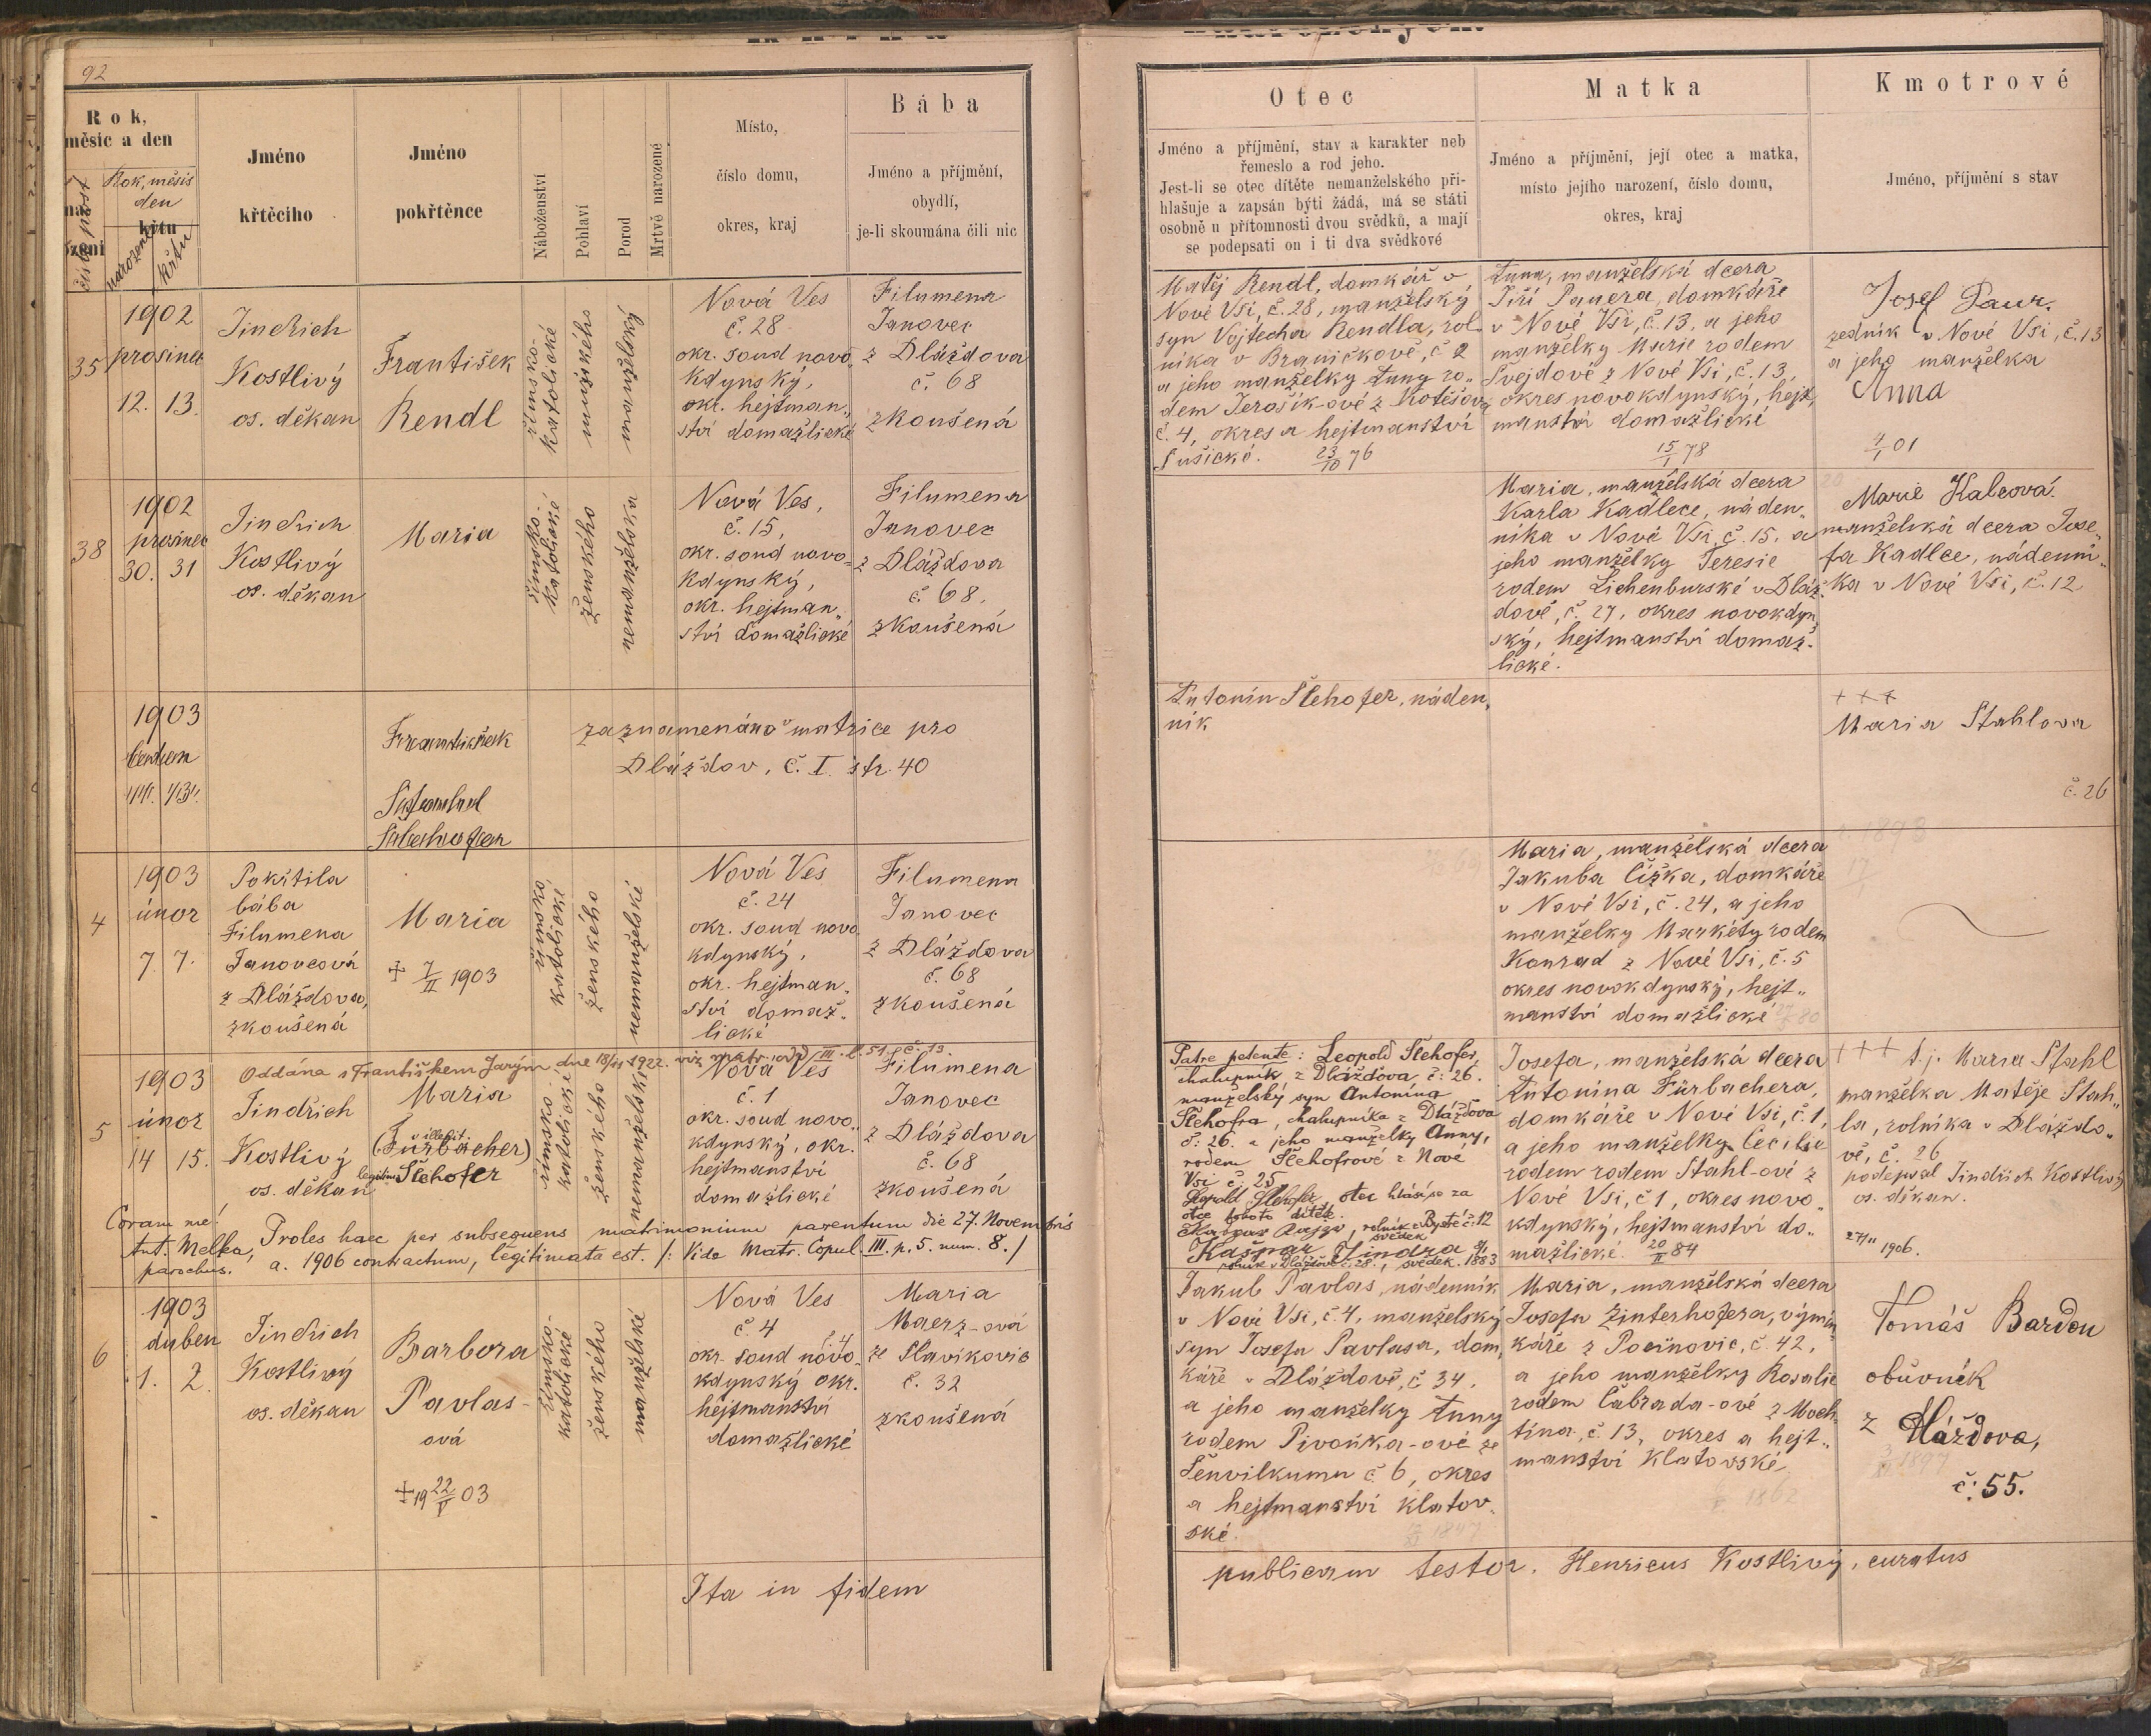 92
Rok,
měsíc a den
Rok, měsís
den
křtu
narození
křtu
Jméno
křtěcího
Jméno
pokřtěnce
Náboženství
Pohlaví
Porod
Mrtvě narozené
Místo,
číslo domu,
okres, kraj
Bába
Jméno a příjmění,
obydlí,
je-li skoumána čili nic
Otec
Jméno a příjmění, stav a karakter neb
řemeslo a rod jeho.
Jest-li se otec dítěte nemanželského při-
hlašuje a zapsán býti žádá, má se státi
osobně u přítomnosti dvou svědků, a mají
se podepsati on i ti dva svědkové
Matka
Jméno a příjmění, její otec a matka,
místo jejího narození, číslo domu,
okres, kraj
Kmotrové
Jméno, příjmění s stav
35
1902
prosinec
12. 13.
Jindřich
Kostlivý
os. děkan
František
Rendl
římsko-
katolické
mužského
manželský
Nová Ves
č. 28
okr. soud novo
kdynský,
okr. hejtman„
ství domažlické
Filumena
Janovec
z Dláždova
č. 68
zkoušená
Matěj Rendl, domkář v
Nové Vsi, č. 28, manželský
syn Vojtecha Rendla, rol-
níka v Braníčkově, č 2
a jeho manželky Anny ro„
dem Jerošík-ové z Kotěšova
č. 4, okres a hejtmanství
Sušické. 23/10 76
Anna, manželská dcera
Jiří Pauera, domkáře
v Nové Vsi, č. 13, a jeho
manželky Marie rodem
Svejdové z Nové Vsi, č. 13,
okres novokdynský, hejt„
manství domažlické
15/1 78
Josef Paur.
zedník v Nové Vsi, č. 13
a jeho manželka
Anna
4/1 01
38
1902
prosinec
30. 31
Jindřich
Kostlivý
os. děkan
Maria
římsko-
katolické
ženského
nemanželska
Nová Ves,
č. 15,
okr. soud novo-
kdynský,
okr. hejtman„
ství domažlické
Filumena
Janovec
z Dláždova
č. 68,
zkoušená
Maria, manželská dcera
Karla Kadlece, náden„
níka v Nové Vsi č. 15, a
jeho manželky Teresie
rodem Lichenburské v Dláž
dově, č. 27, okres novokdyn
ský, hejtmanství domaž-
lické.
Marie Kalcová.
manželská dcera Jose„
fa Kadlce, nádenní„
ka v Nové Vsi, č. 12
1903
František
Štehofer
zaznamenáno v matrice pro
Dláždov, č. I. str. 40
Antonín Stehofer, náden„
ník
+++
Maria Stahlova
č. 26
4
1903
únor
7. 7.
Pokřtila
bába
Filumena
Janovcová
z Dláždova,
zkoušená
Maria
✝ 7/II 1903
římsko
katolické
ženského
nemanželské
Nová Ves
č. 24
okr. soud novo
kdynský,
okr. hejtman„
ství domaž„
lické
Filumena
Janovec
z Dláždova
č. 68
zkoušená
Maria, manželská dcera
Jakuba Čižka, domkáře
v Nové Vsi, č. 24, a jeho
manželky Markéty rodem
Konrad z Nové Vsi, č. 5
okres novokdynský, hejt„
manství domažlické
Oddána s Františkem Jarým dne 18/11 1922. viz matr. odd III. l. 51 č. 13.
5
1903
únor
14 15.
Jindřich
Kostlivý
os. děkan
Maria
(Fürbacher)
legitim Stehofer
římsko
katolické
ženského
nemanželské
Nová Ves
č. 1
okr. soud novo„
kdynský, okr.
hejtmanství
domažlické
Filumena
Janovec
z Dláždova
č. 68
zkoušená
Patre petente: Leopold Stehofer,
chalupník z Dláždova č: 26.
manželský syn Antonína
Stehofra, chalupníka z Dláždova
č. 26. a jeho manželky Anny,
rodem Stehofrové z Nové
Vsi č. 25
Leopold Stehofer, otec hlásí se za
otce tohoto dítěte.
rolník z Bystré č. 12
svědek
Kašpar Jindra
rolník v Dláždově č. 28., svědek. 1883
Josefa, manželská dcera
Antonína Fürbachera,
domkáře v Nové Vsi, č. 1,
a jeho manželky Cecilie
rodem rodem Stahl-ové z
Nové Vsi, č 1, okres novo„
kdynský, hejtmanství do„
mažlické. 20/II 84
+++ t.j. Maria Stahl
manželka Matěje Stah„
la, rolníka v Dláždo„
vě, č. 26
podepsal Jindřich Kostlivý
os. děkan.
27/11 1906.
Coram me!
Ant. Melka,
parochus.
Proles haec per subsequens matrimonium parentum die 27. Novembris
a. 1906 contractum, legitimata est. /: Vide Matr. Copul. III. p. 5. num. 8. /
6
1903
duben
1. 2.
Jindřich
Kostlivý
os. děkan
Barbora
Pavlas-
ová
✝ 19 22/V 03
římsko-
katolické
ženského
manželské
Nová Ves
č. 4
okr. soud novo-
kdynský okr.
hejtmanství
domažlické
Maria
Maerz-ová
ze Slavíkovic
č. 32
zkoušená
Jakub Pavlas, nádenník
v Nové Vsi, č. 4, manželský
syn Josefa Pavlasa, dom„
káře v Dláždově, č 34.
a jeho manželky Anny
rodem Pivoňka-ové ze
Šenvilkumu č. 6, okres
a hejtmanství klatov„
ské.
Maria, manželská dcera
Josefa Zinterhofera, výmin
káře z Pocinovic, č. 42,
a jeho manželky Rosalie
rodem Čabrada-ové z Moch„
tína, č. 13, okres a hejt„
manství Klatovské
Tomáš Bardon
obuvník
z Dláždova,
č: 55.
Ita in fidem publicam testor. Henricus Kostlivý, curatus